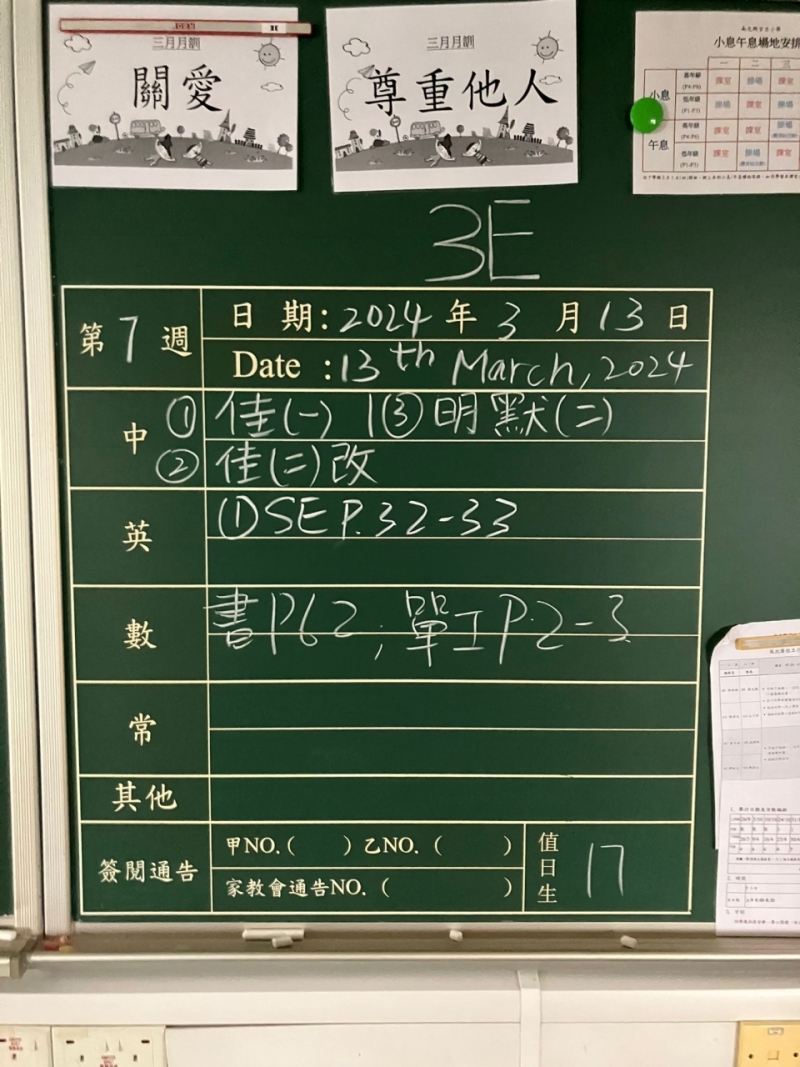 三月月訓
關愛
三月月訓
尊重他人
小息午息場地安排
一 二 三
小息
高年級 (P4-P6) 課室 操場 課室
低年級 (P1-P3) 操場 課室 操場
午息
高年級 (P4-P6) 課室 操場 課室
低年級 (P1-P3) 課室 操場 課室
3E
第 7 週
日 期: 2024 年 3 月 13 日
Date : 13th March, 2024
中
① 佳(一) | ③ 明默(二)
② 佳(二)改
英
① DSE P.32-33
數
書P62 ; 單工 P.2-3
常
其他
簽閱通告
甲NO.( ) 乙NO. ( )
家教會通告NO. ( )
值日生
17